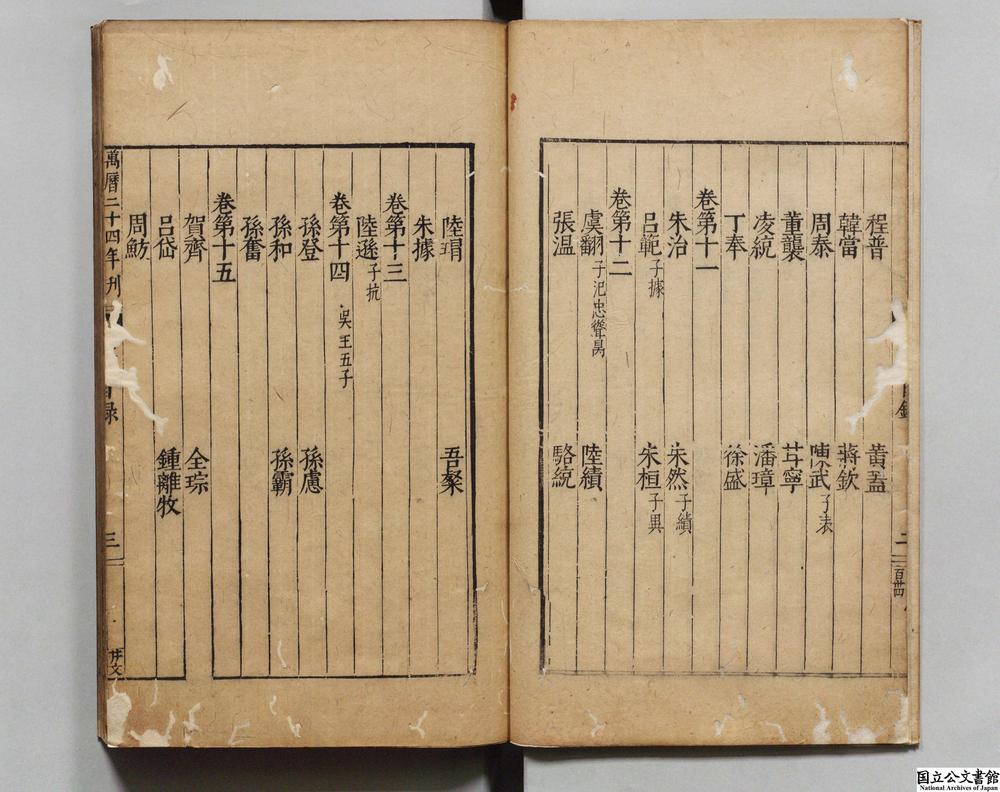 程普　黃蓋
韓當　蔣欽
周泰　陳武子表
董襲　甘寧
凌統　潘璋
丁奉　徐盛
卷第十一
朱治　朱然子績
呂範子據　朱桓子異
卷第十二
虞翻子汜忠聳昺　陸績
張温　駱統
錄
二
百卌
陸瑁　吾粲
朱據
卷第十三
陸遜子抗
卷第十四　吳王五子
孫登　孫慮
孫和　孫霸
孫奮
卷第十五
賀齊　全琮
呂岱　鍾離牧
周魴
萬曆二十四年刊
目録
三
井文
国立公文書館
National Archives of Japan